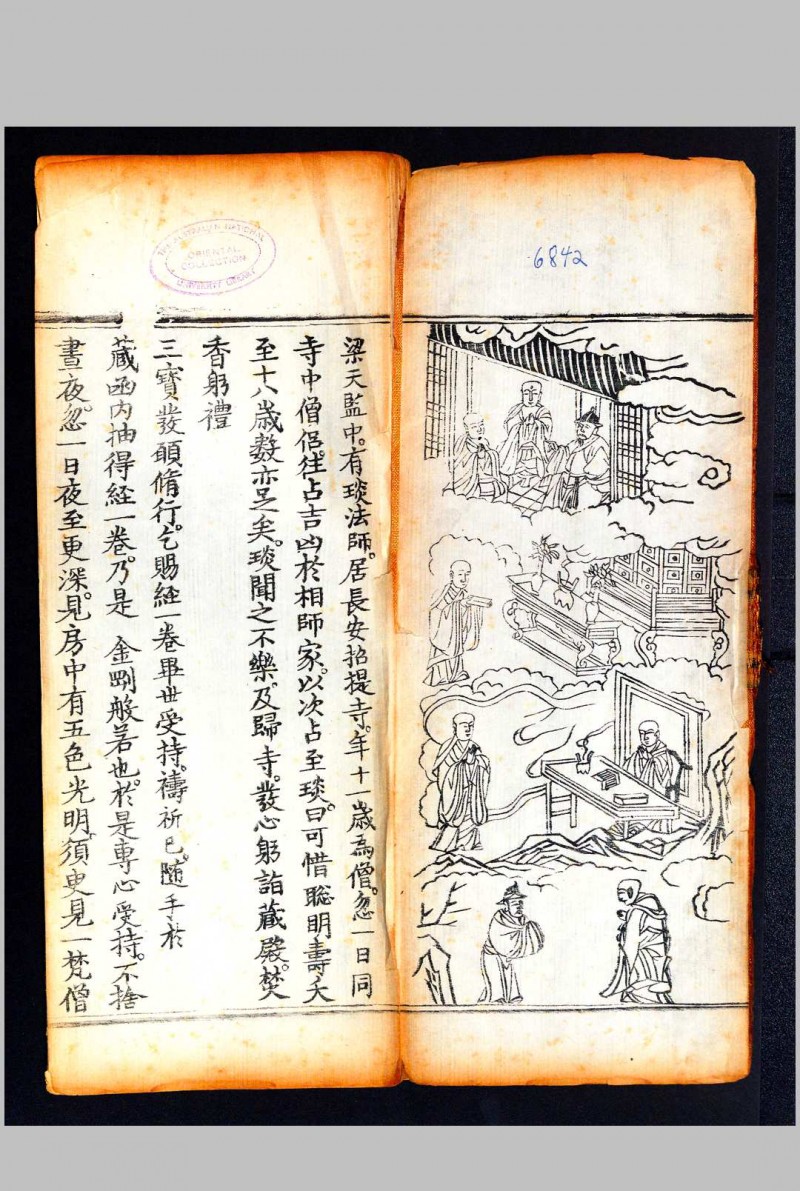 6842
梁天監中。有琰法師。居長安招提寺。年十一歲為僧。忽一日同
寺中僧侶。往占吉凶於相師家。以次占至琰。曰可惜聰明壽夭
至十八歲數亦足矣。琰聞之不樂。及歸寺。發心躬詣藏殿。焚
香躬禮
三寶發願脩行。乞賜經一卷畢世受持。禱祈已。隨手於
藏函內抽得経一卷。乃是 金剛般若也。於是專心受持。不捨
晝夜。忽一日夜至更深。見房中有五色光明。須臾見一梵僧
THE AUSTRALIAN NATIONAL
ORIENTAL
COLLECTION
UNIVERSITY LIBRARY